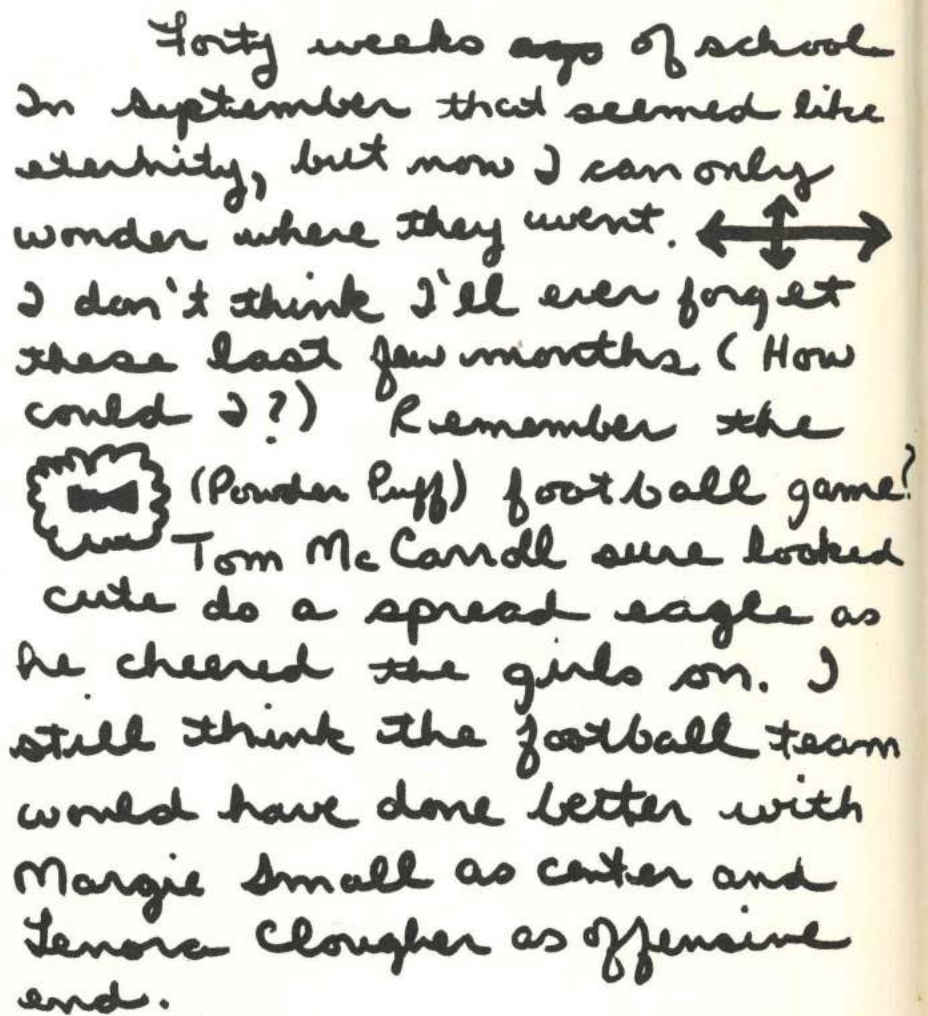 Forty weeks ago of school
In September that seemed like
eternity, but now I can only
wonder where they went.
I don't think I'll ever forget
these last few months. (How
could I?) Remember the
(Powder Puff) football game?
Tom McCarroll sure looked
cute do a spread eagle as
he cheered the girls on. I
still think the football team
would have done better with
Margie Small as center and
Lenora Clougher as offensive
end.